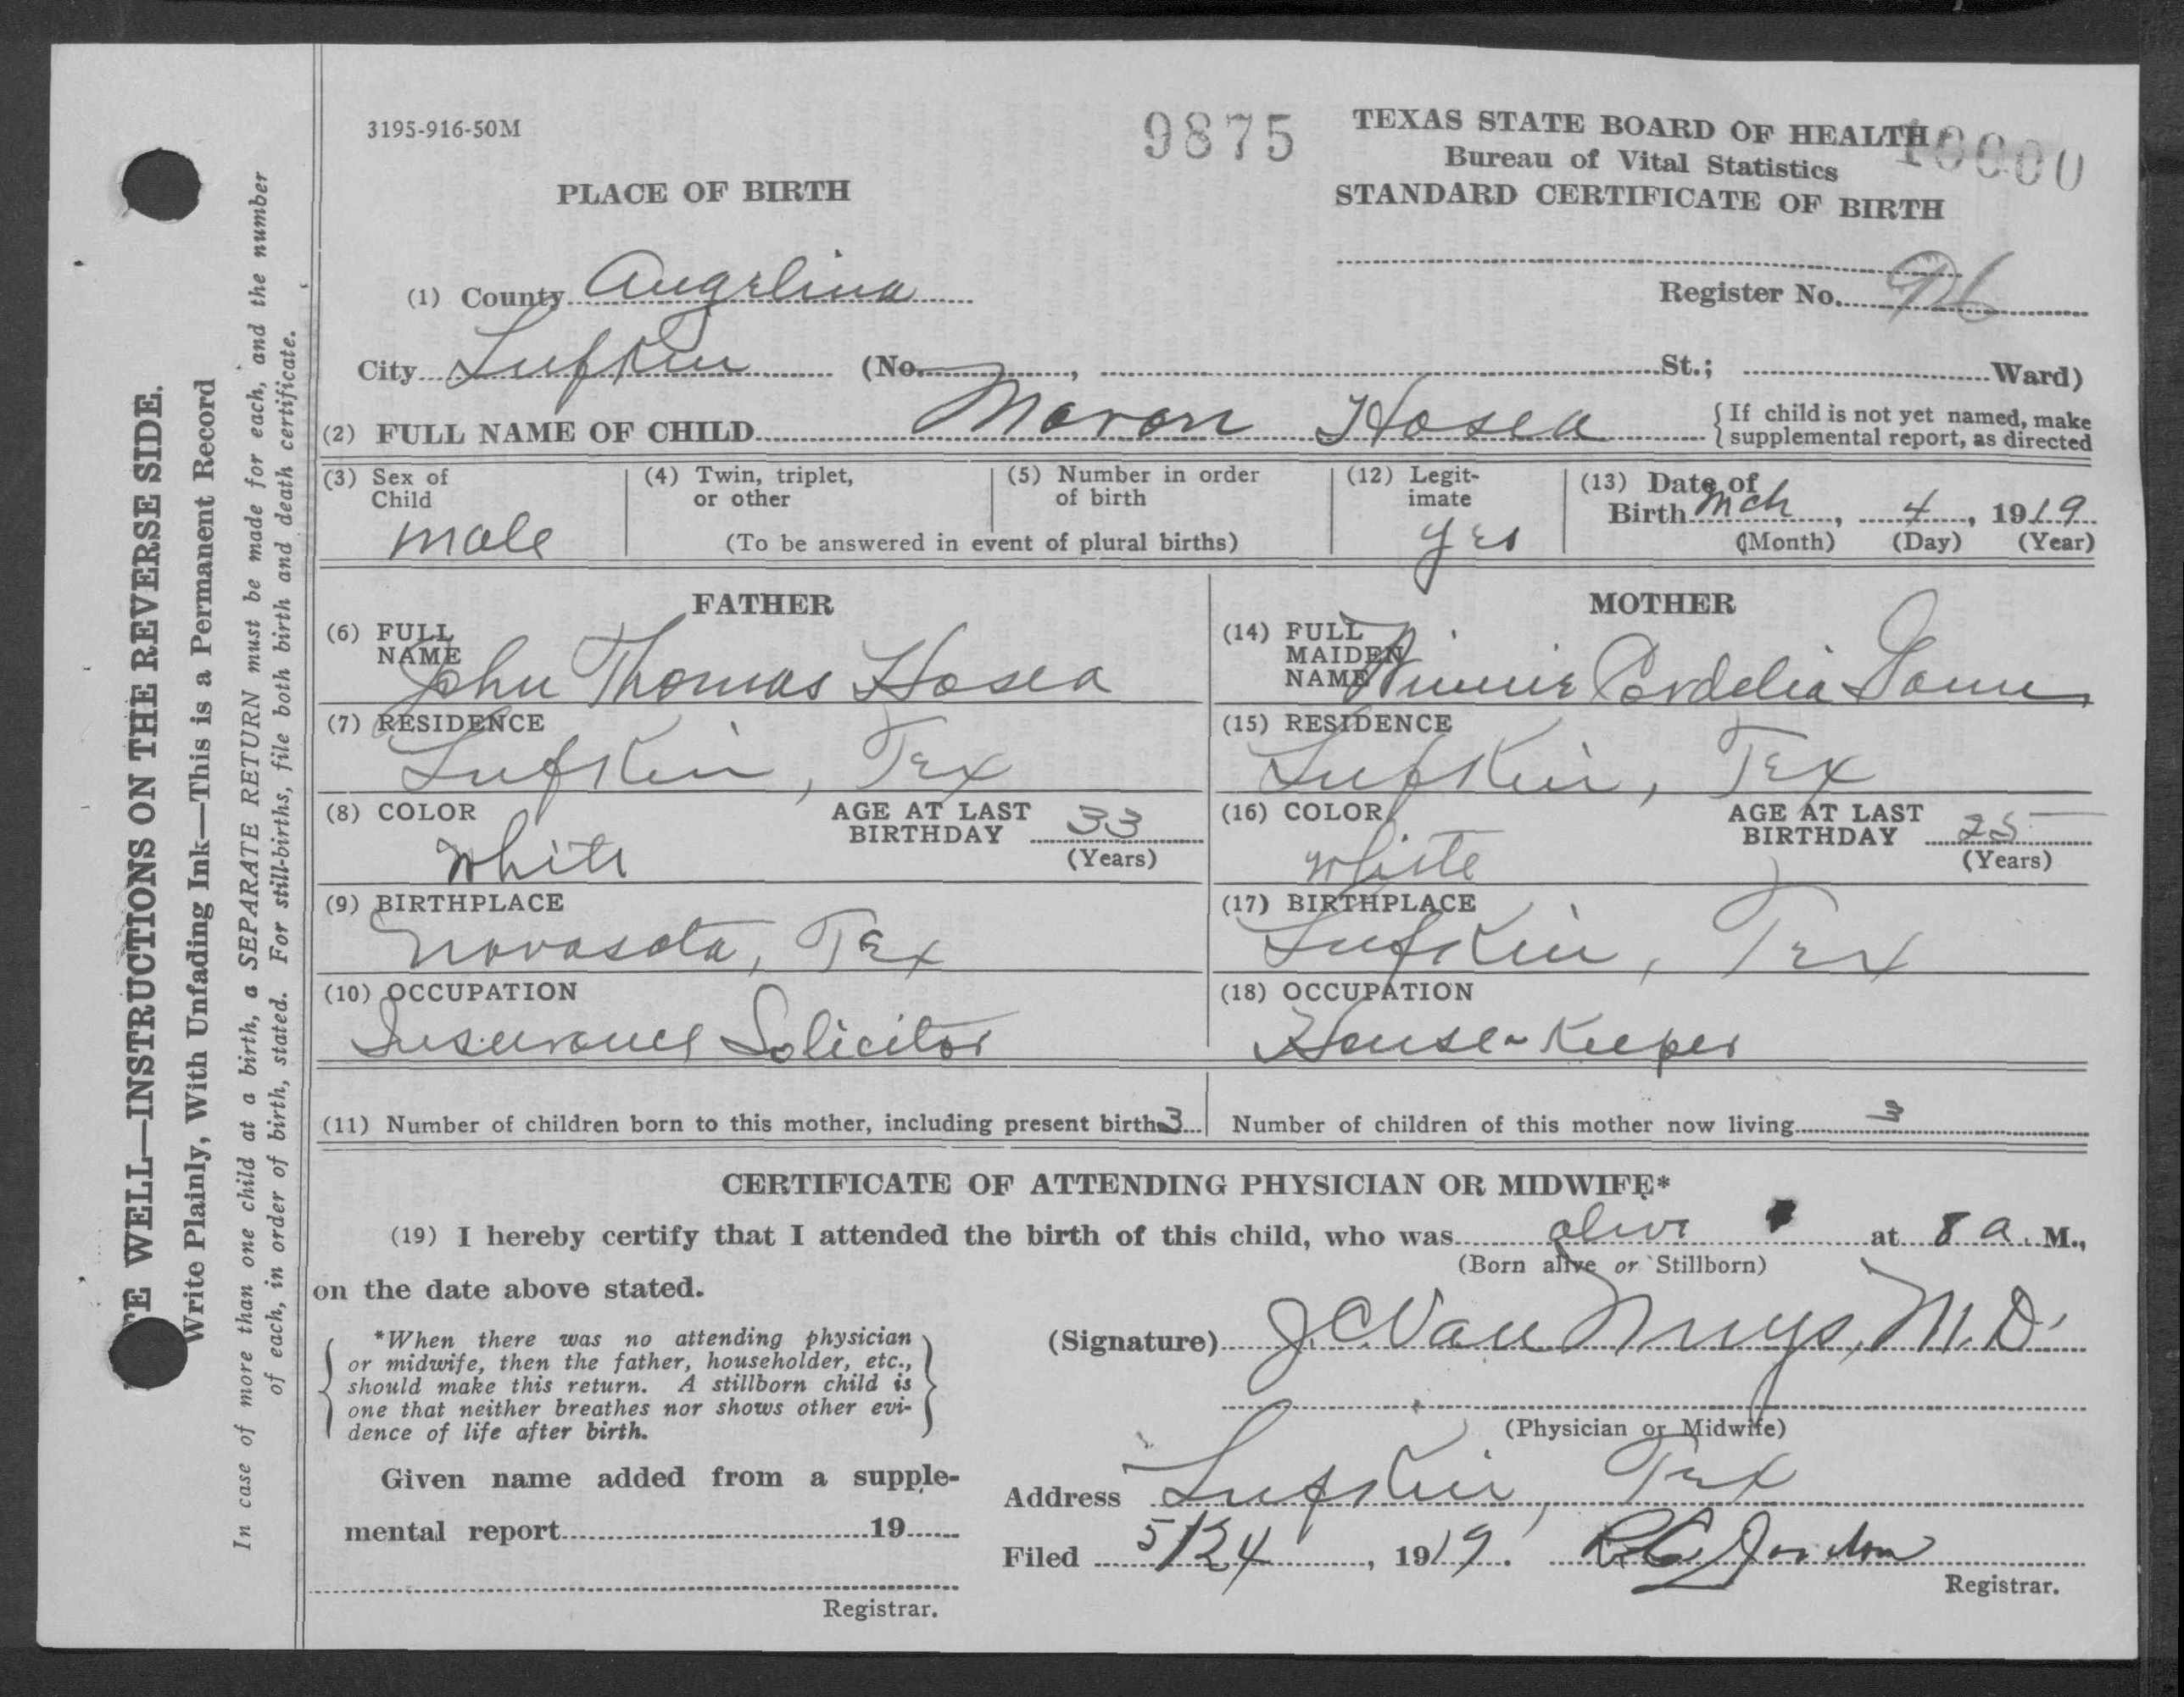 3195-916-50M
9875
TEXAS STATE BOARD OF HEALTH
10000
Bureau of Vital Statistics
STANDARD CERTIFICATE OF BIRTH
PLACE OF BIRTH
(1) County Angelina
Register No.
City Lufkin (No. , St.; Ward)
(2) FULL NAME OF CHILD Moron Hosea
{If child is not yet named, make
supplemental report, as directed
(3) Sex of
Child
male
(4) Twin, triplet,
or other
(5) Number in order
of birth
(To be answered in event of plural births)
(12) Legit-
imate
yes
(13) Date of
Birth Mch , 4 , 1919
(Month) (Day) (Year)
FATHER
(6) FULL
NAME
John Thomas Hosea
(7) RESIDENCE
Lufkin, Tex
(8) COLOR
White
AGE AT LAST
BIRTHDAY 33
(Years)
(9) BIRTHPLACE
Novasota, Tex
(10) OCCUPATION
Insurance Solicitor
MOTHER
(14) FULL
MAIDEN
NAME
Winnie Cordelia
(15) RESIDENCE
Lufkin, Tex
(16) COLOR
White
AGE AT LAST
BIRTHDAY 25
(Years)
(17) BIRTHPLACE
Lufkin, Tex
(18) OCCUPATION
House-Keeper
(11) Number of children born to this mother, including present birth 3
Number of children of this mother now living 3
CERTIFICATE OF ATTENDING PHYSICIAN OR MIDWIFE*
(19) I hereby certify that I attended the birth of this child, who was alive at 8 a. M.,
(Born alive or Stillborn)
on the date above stated.
*When there was no attending physician
or midwife, then the father, householder, etc.,
should make this return. A stillborn child is
one that neither breathes nor shows other evi-
dence of life after birth.
(Signature) J.C. Van Nuys, M.D.
(Physician or Midwife)
Given name added from a supple-
mental report 19
Registrar.
Address Lufkin, Tex
Filed 5/24, 1919. Jordon
Registrar.
TE WELL—INSTRUCTIONS ON THE REVERSE SIDE.
Write Plainly, With Unfading Ink—This is a Permanent Record
In case of more than one child at a birth, a SEPARATE RETURN must be made for each, and the number
of each, in order of birth, stated. For still-births, file both birth and death certificate.